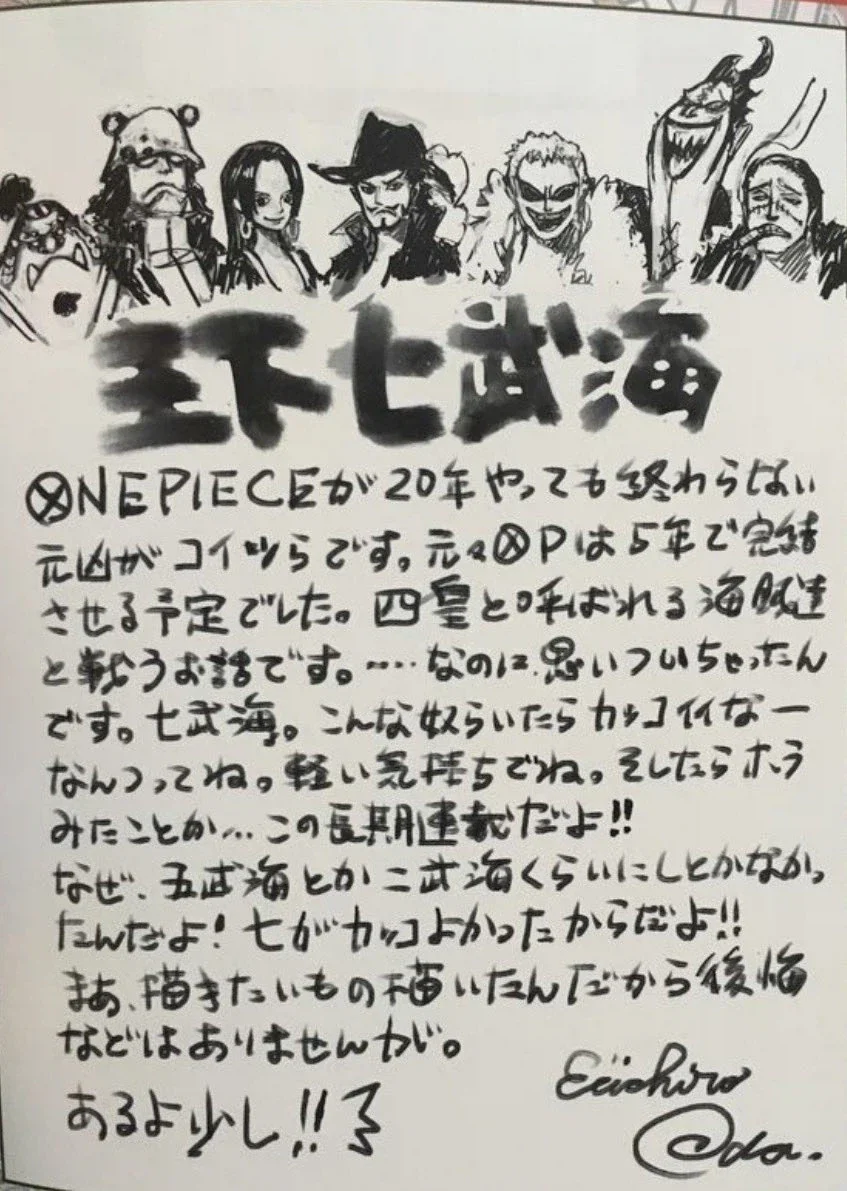 王下七武海
ONE PIECEが20年やっても終わらない
元凶がコイツらです。元々OPは5年で完結
させる予定でした。四皇と呼ばれる海賊達
と戦うお話です。……なのに、思いついちゃったん
です。七武海。こんな奴らいたらカッコイイなー
なんつってね。軽い気持ちでね。そしたらホラ
みたことか…この長期連載だよ!!
なぜ、五武海とか二武海くらいにしとかなかっ
たんだよ!七がカッコよかったからだよ!!
まあ、描きたいもの描いたんだから後悔
などはありませんが。
あるよ少し!!
Eiichiro
Oda.